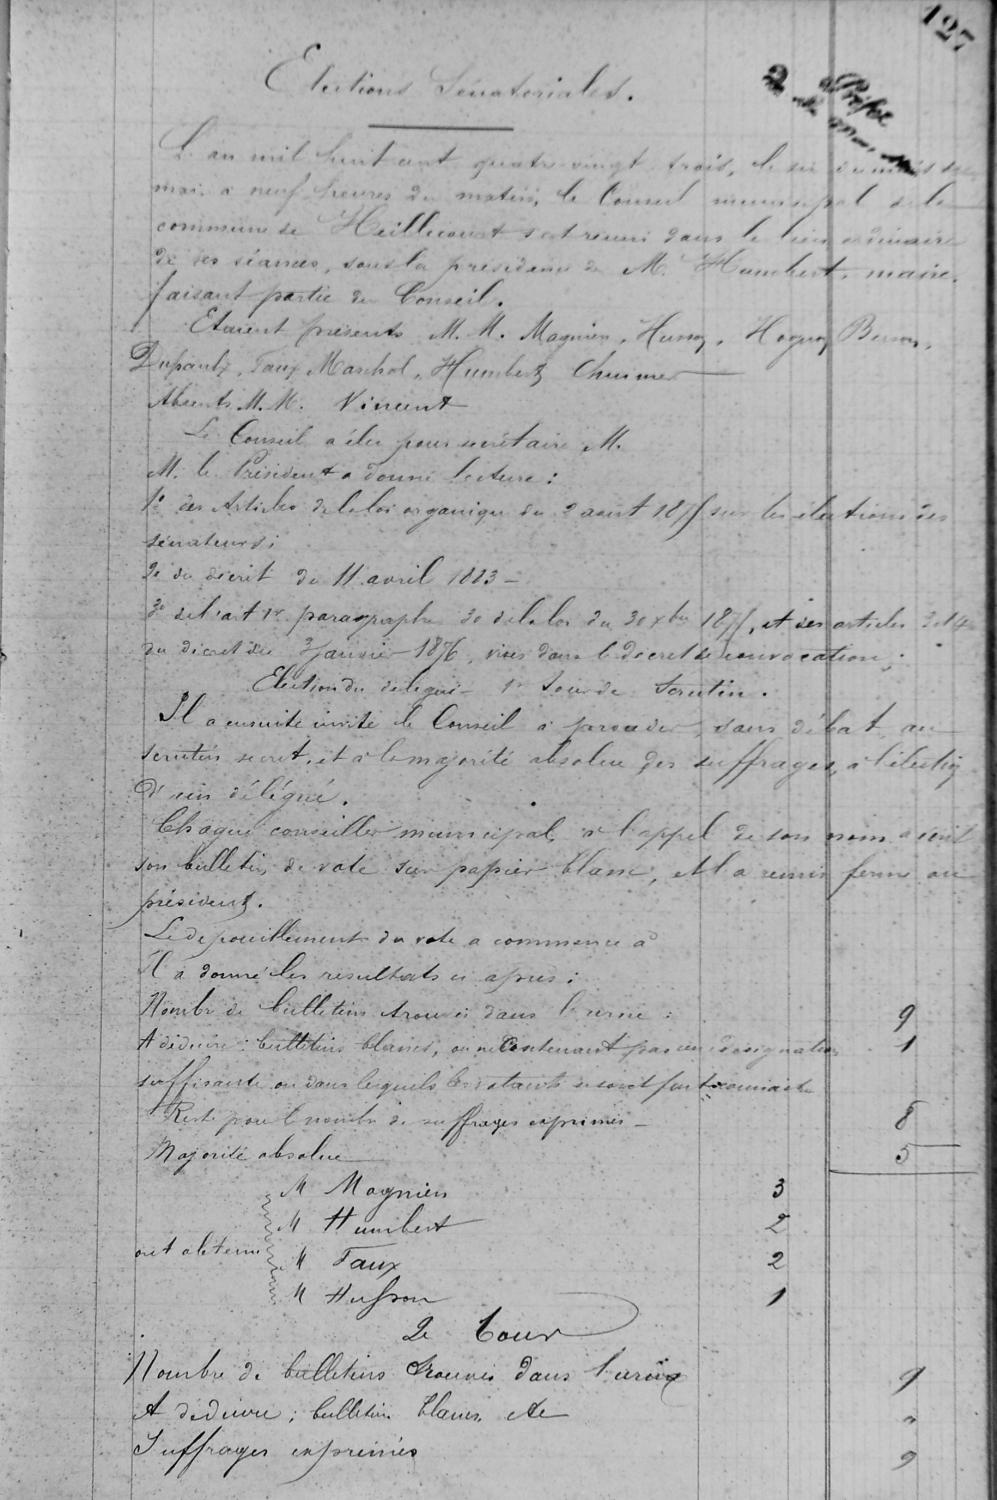 127
Elections Sénatoriales.
Préfet
L'an mil huit cent quatre-vingt trois, le six du mois de
mai à neuf heures du matin, le Conseil municipal de la
commune de Heillecourt s'est réuni dans le lieu ordinaire
de ses séances, sous la présidence de M. Humbert, maire,
faisant partie du Conseil.
Etaient présents M. M. Magnien, Husson, Hoquy, Besson,
Dupaulx, Faux Marchal, Humbert, Chuimer
Absents M. M. Vincent
Le Conseil a élu pour secrétaire M.
M. le Président a donné lecture :
1° des Articles de la loi organique du 2 août 1875 sur les élections des
sénateurs ;
2° du décret du 11 avril 1883 -
3° de l'art 1er paragraphe 3° de la loi du 30 xbre 1875, et des articles 3 et 4
du décret du 3 janvier 1876, visés dans le décret de convocation ;
Election du délégué - 1er Tour de Scrutin.
Il a ensuite invité le Conseil à procéder, sans débat, au
scrutin secret, et à la majorité absolue des suffrages, à l'élection
d'un délégué.
Chaque conseiller municipal, à l'appel de son nom a écrit
son bulletin de vote sur papier blanc, et l'a remis fermé au
président.
Le dépouillement du vote a commencé à
Il a donné les resultats ci après :
Nombre de bulletins trouvés dans l'urne : 9
A déduire : bulletins blancs, ou ne contenant pas une désignation 1
suffisante ou dans lesquels les votants se sont fait connaitre
Reste pour le nombre de suffrages exprimés - 8
Majorité absolue 5
M Magnien 3
M Humbert 2
ont obtenu M Faux 2
M Husson 1
2e Tour
Nombre de bulletins trouvés dans l'urne 9
A déduire ; bulletins blancs etc "
Suffrages exprimés 9